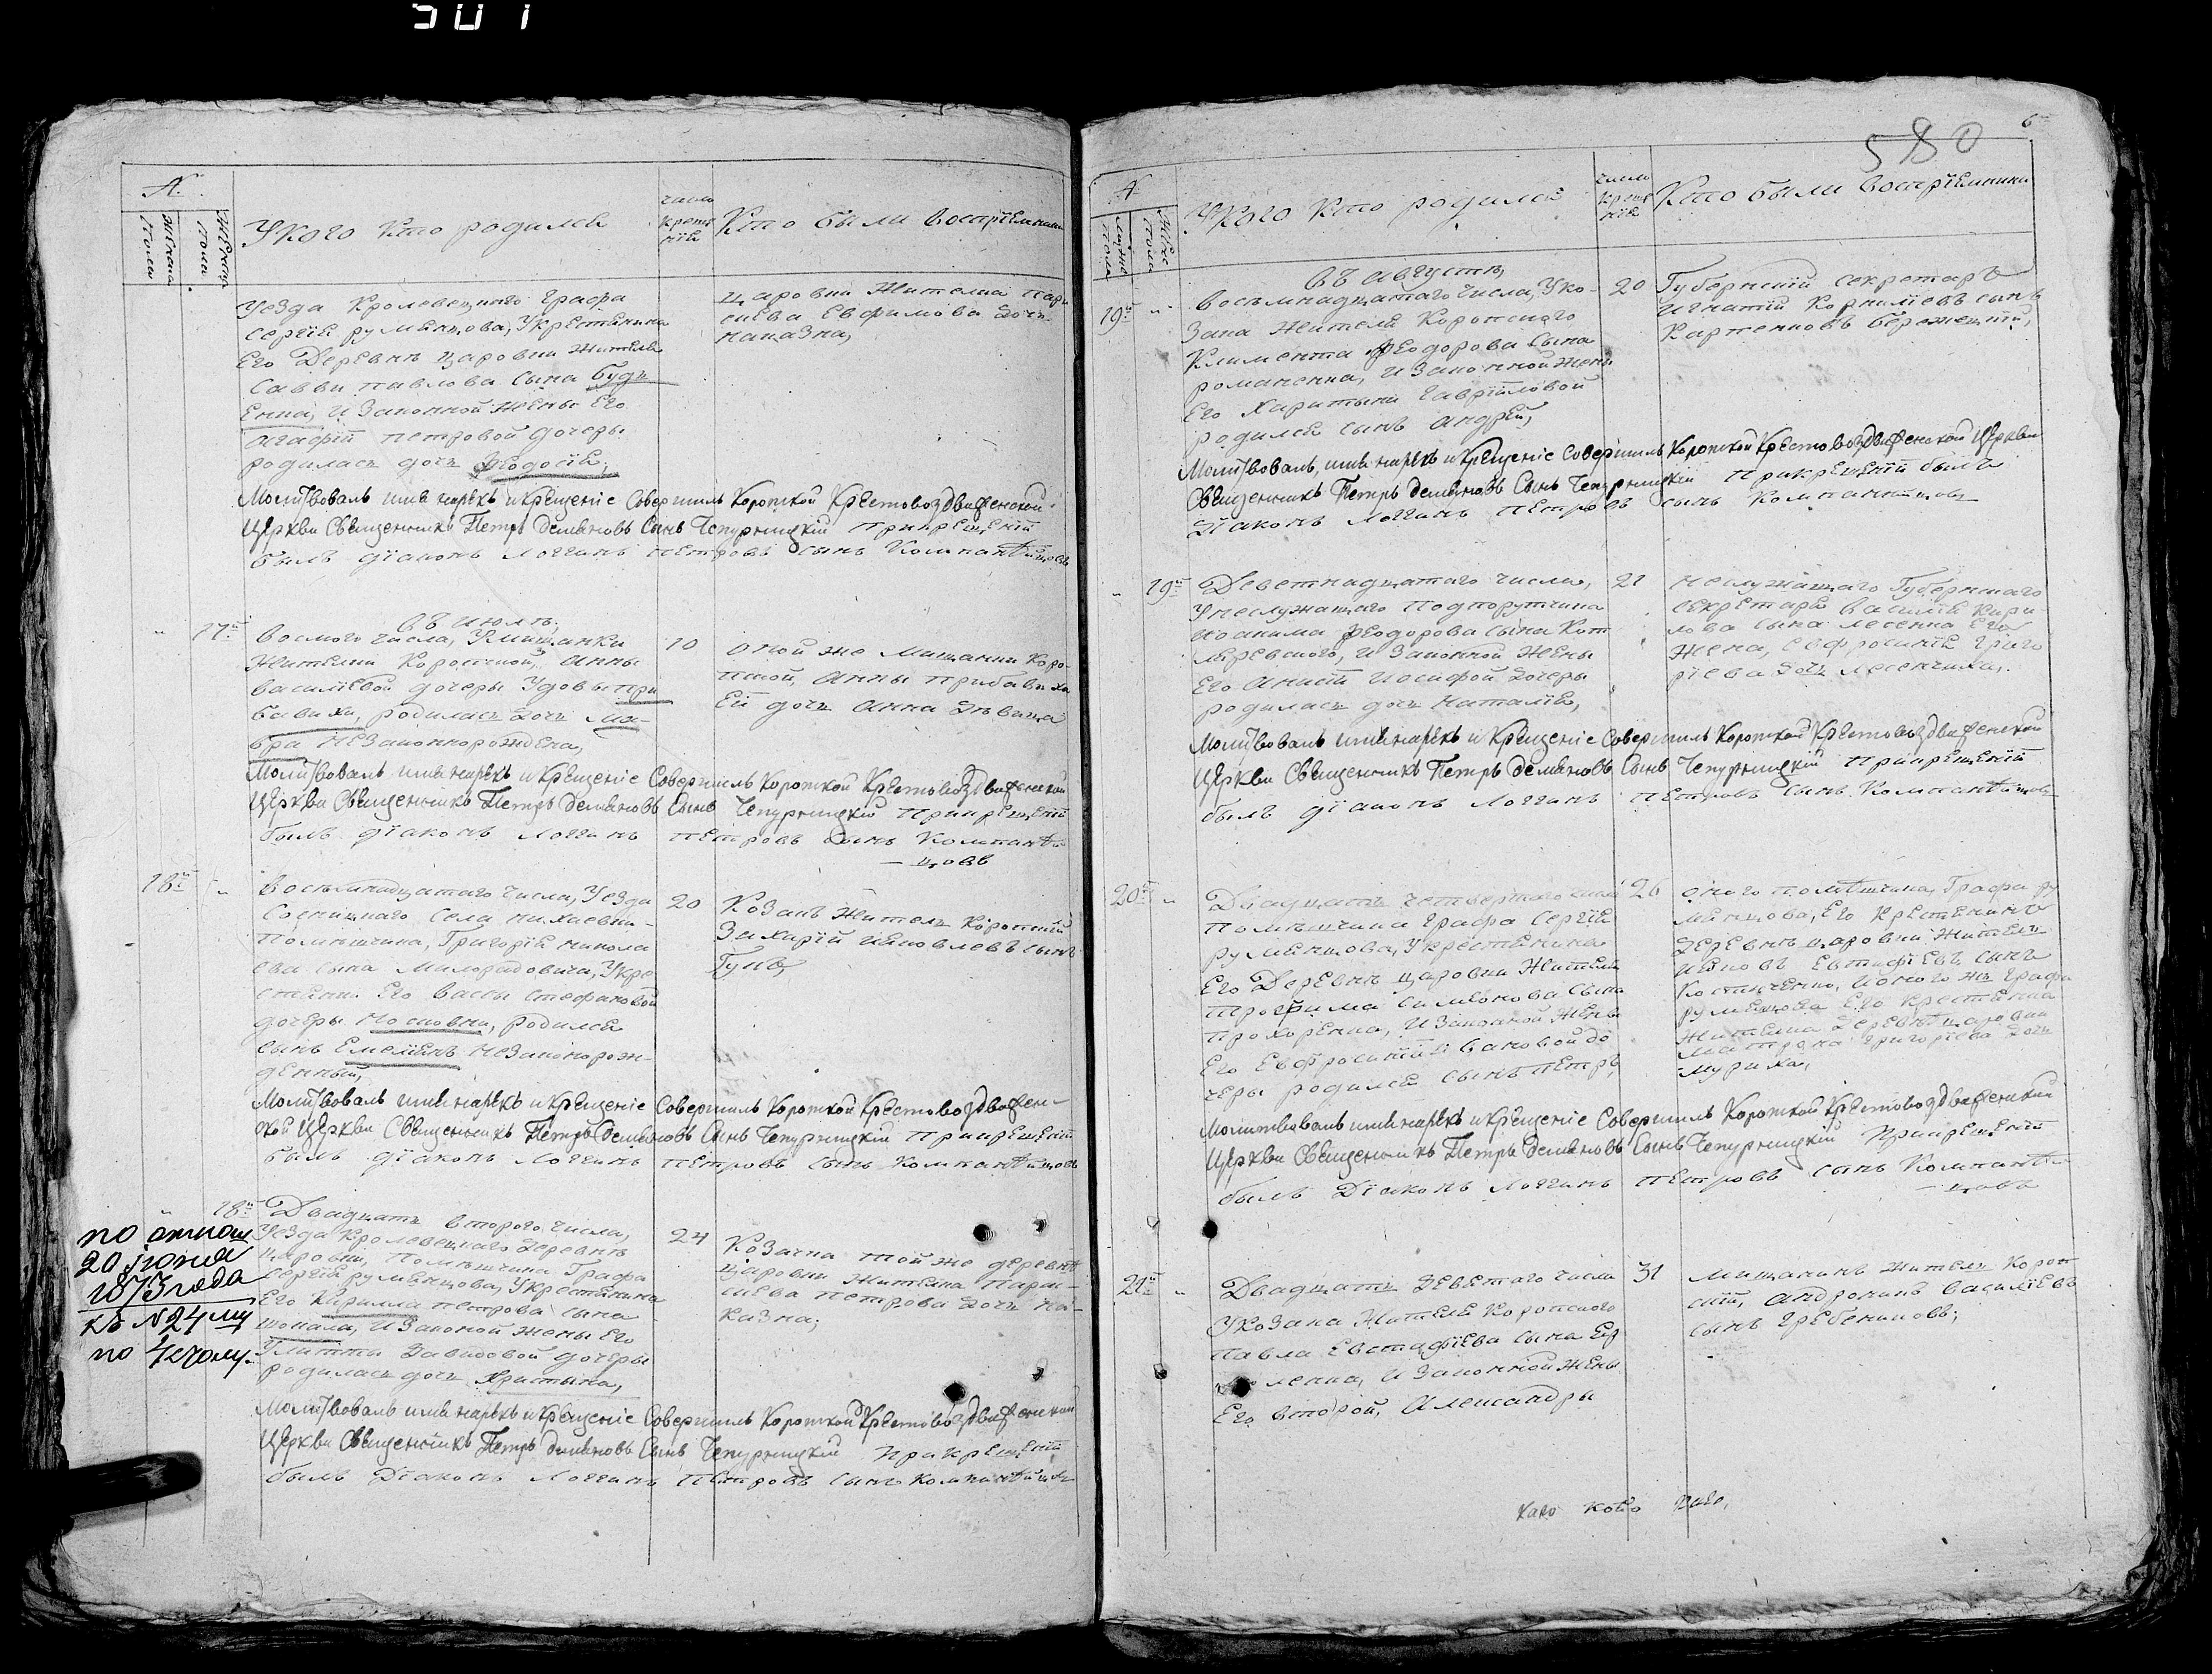 501
№
Мужеска пола
Женска пола
У кого кто родился
число крещенія
Кто были воспріемники
уезда Кролевецкаго Графа
Сергія румянцова, Укрестьянина
Его Деревнѣ царовки жителя
Саввы павлова сына Буде
Енка, и Законной жены Его
агафіи петровой дочеры
родилась дочь Феодосія,
царовки жителка пара
скева Евфимова дочь
наказна,
Молитвовалъ имя нарекъ и Крещеніе Совершилъ Коропской Крестовоздвиженской
Церкви Священникъ Петръ Демяновъ Сынъ Чепурницкій при крещеніи
былъ діаконъ логгинъ петровъ сынъ Компанѣйцовъ
17й
Въ июлѣ,
восмого числа, Умищанки
Жителки Коропской, анны
василіевой дочеры Удовы при
бавихи, родилась дочь Ма-
вра незаконнорождена,
10
оной же Мищанки Коро-
пской, анны прибавихи
Ей дочь анна девица
Молитвовалъ имя нарекъ и Крещеніе Совершилъ Коропской Крестовоздвиженской
Церкви Священникъ Петръ Демяновъ Сынъ Чепурницкій при крещеніи
былъ діаконъ логгинъ петровъ сынъ Компанѣй
- цовъ
18й
Восемнадцатаго числа, Уезда
Сосницкаго села
помѣщика, Григорія никола
ева сына Милорадовича, Укре
стянки Его Васы стефановой
дочеры Носковны, родился
сынъ Емеліянъ незаконорож-
денный,
20
Козакъ жителъ Коропскій
Захарій Ияковлевъ сынъ
Гуця
Молитвовалъ имя нарекъ и Крещеніе Совершилъ Коропской Крестовоздвижен-
ской Церкви Священникъ Петръ Демяновъ Сынъ Чепурницкій при крещеніи
былъ діаконъ логгинъ петровъ сынъ Компанѣйцовъ
18й
Двадцать второго числа,
Уезда Кролевецкаго деревнѣ
царовки, помѣщика Графа
Сергія румянцова, Укрестьянина
Его Кирилла петрова сына
шопала, и Законой жены Его
Улитти Давидовой дочеры
родилась дочь Христина,
24
Козачка той же деревнѣ
царовки жителка пара-
скева петрова дочь на-
казна;
по отнош
20 іюня
1873 года
къ №24му
по 4 столу.
Молитвовалъ имя нарекъ и Крещеніе Совершилъ Коропской Крестовоздвиженской
Церкви Священникъ Петръ Демяновъ Сынъ Чепурницкій при крещеніи
былъ Діаконъ логгинъ петровъ сынъ Компанѣйцовъ
6
580
№
Мужес пола
Женс пола
У кого кто родился
число крещенія
Кто были воспріемники
Въ августѣ,
19й
восемнадцатаго числа, Уко-
зака жителя Коропского
Климента феодорова сына
романенка, и Законной жены
Его Харитыни Гавріиловой
родился сынъ андрей,
20
Губернскій секретарь
игнатій Корниліевъ сынъ
Карпенковъ бережецкій,
Молитвовалъ, имя нарекъ и Крещеніе Совершилъ Коропской Крестовоздвиженской Церкви
Священникъ Петръ Демяновъ Сынъ Чепурницкій при крещеніи былъ
Діаконъ логгинъ петровъ сынъ Компанѣйцовъ
19й
Деветнадцатаго числа,
Унеслужащаго подпорутчика
иоакима феодорова сына Кот
ляревского, и Законной жены
Его аннѣ иосифой дочеры
родилась дочь Наталія,
21
неслужащаго Губернского
секретаря василія Кири
лова сына лесенка Его
жена, Евфросинія Григо
ріева дочь лесенчиха,
Молитвовалъ имя нарекъ и Крещеніе Совершилъ Коропской Крестовоздвиженской
Церкви Священникъ Петръ Демяновъ Сынъ Чепурницкій при крещеніи
былъ діаконъ логгинъ петровъ сынъ Компанѣйцовъ
20й
Двадцать четвертого числа
помѣщика Графа Сергія
румянцова, Укрестьянина
Его Деревнѣ царовки жителя
трофима Симеонова сына
прохоренка, и Законной жены
Его Евфросиніи ивановой до
черы родился сынъ петръ,
26
оного помѣщика, Графа ру
мянцова, Его Крестянинъ
деревнѣ царовки жителъ
ияковъ Евтафіевъ сынъ
Костюченко, и оного жъ Графа
румянцова Его Крестянка
жителка деревнѣ царовки
Матрона Григоріева дочь
Муриха,
Молитвовалъ имя нарекъ и Крещеніе Совершилъ Коропской Крестовоздвиженской
Церкви Священникъ Петръ Демяновъ Сынъ Чепурницкій при крещеніи
былъ Діаконъ логгинъ петровъ сынъ Компанѣй
- цовъ
21й
Двадцать деветаго числа
Укозака жителя Коропского
павла Евстафіева сына Ер
ленка, и Законной жены
Его второй, Александры
31
Мищанинъ жителъ Короп
скій, андроникъ василіевъ
сынъ Гребениковъ;